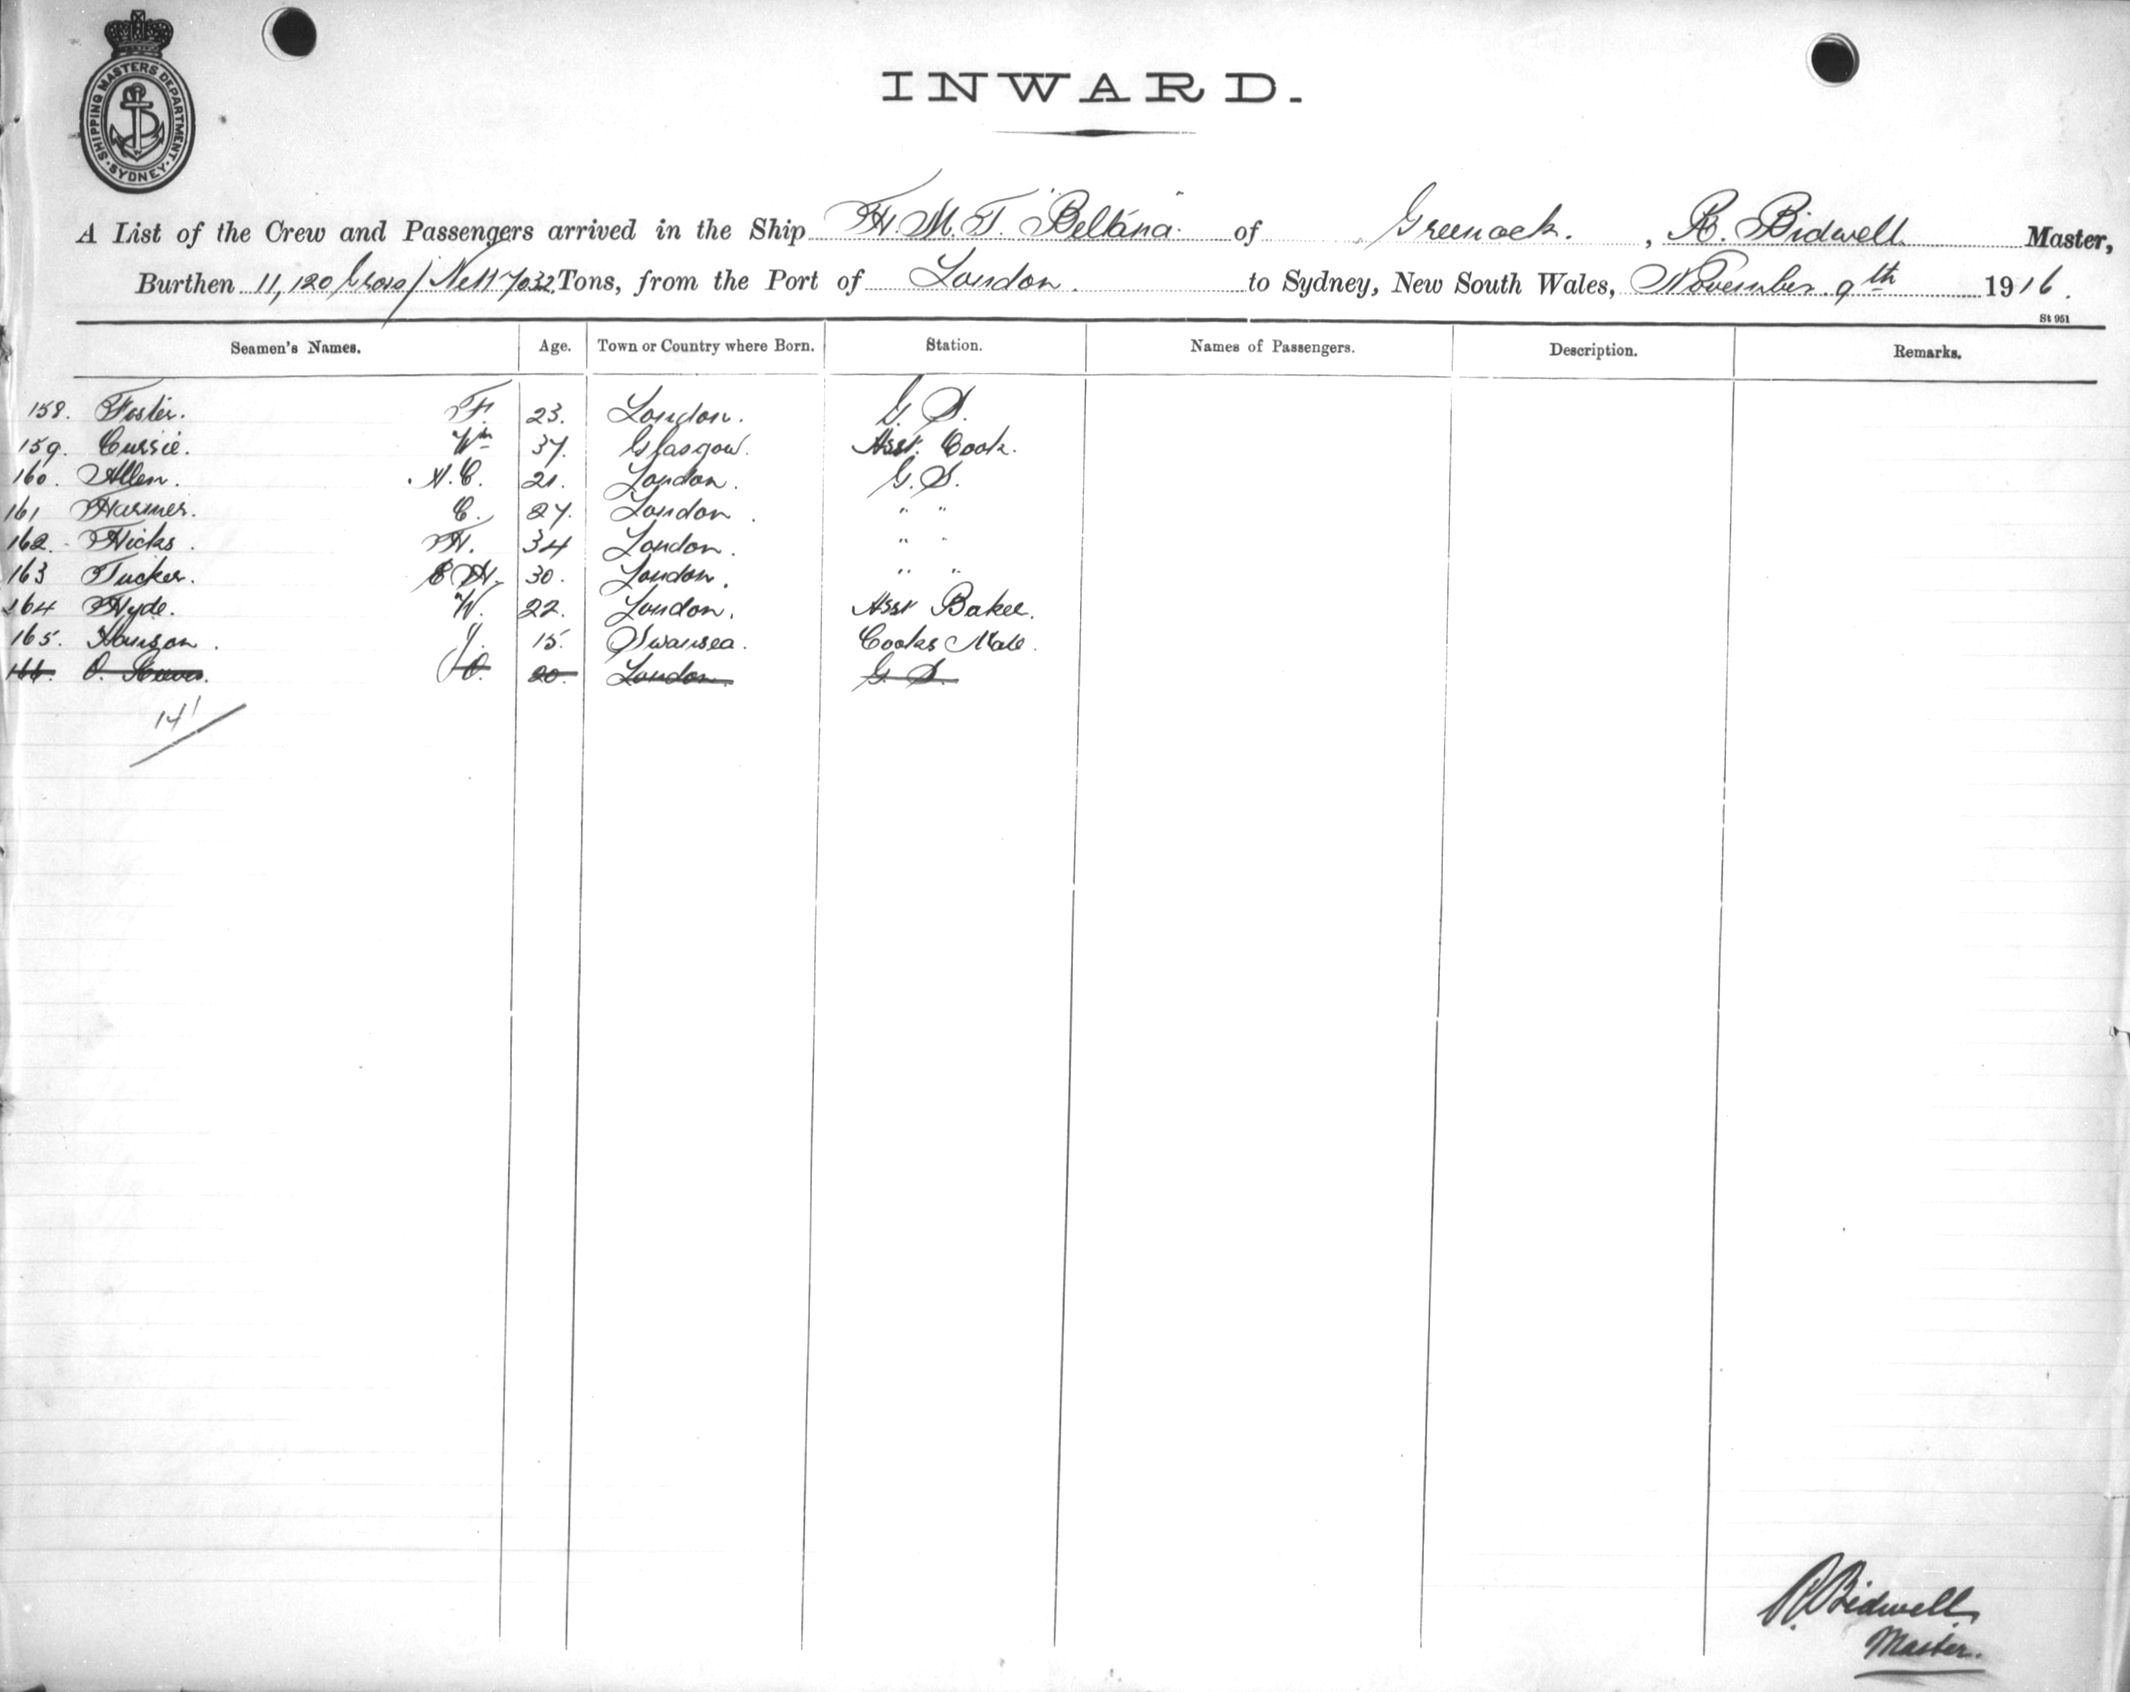 SHIPPING MASTERS DEPARTMENT · SYDNEY ·
INWARD.
A List of the Crew and Passengers arrived in the Ship H. M. T. "Beltana" of Greenock. , R. Bidwell Master,
Burthen 11,120 Gross / Nett 7032 Tons, from the Port of London. to Sydney, New South Wales, November 9th 1916.
St 951
Seamen's Names. Age. Town or Country where Born. Station. Names of Passengers. Description. Remarks.
158. Foster. F. 23. London. G. S.
159. Currie. Wm 37. Glasgow. Asst. Cook.
160. Allen. H. C. 21. London. G. S.
161 Harmer. C. 27. London. " "
162. Hicks. H. 34 London. " "
163 Tucker. H. 30. London. " "
164 Hyde. W. 22. London. Asst Baker.
165. Hanson. J. 15. Swansea. Cooks Mate.
166. O. 20. London. G. S.
141
R. Bidwell
Master.